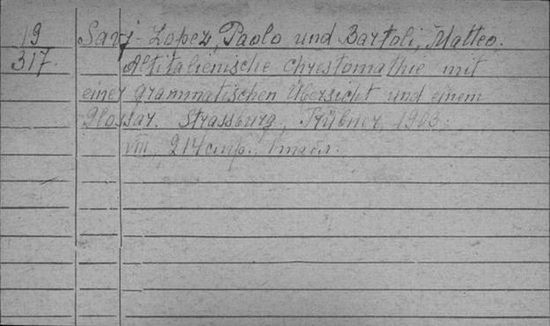 19 Savj-Lopez, Paolo und Bartoli, Matteo.
317. Altitalienische Chrestomathie mit
einer grammatischen Übersicht und einem
Glossar. Strassburg, Trübner, 1903.
VIII, 214 стр.,